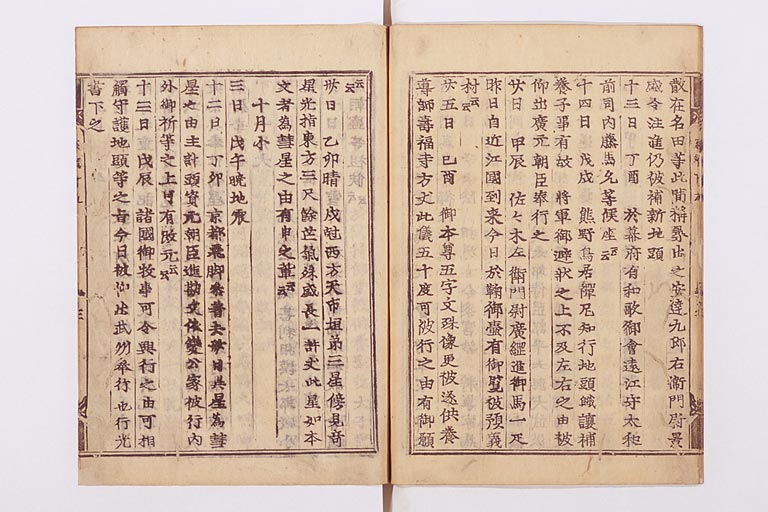 散在名田等此間稱祭出之安達九郎右衛門尉景
盛令注進仍被補新地頭
十三日 丁酉 於幕府有和歌御會遠江守大和
前司内藤馬允等候座云云
十四日 戊戌 熊野鳥居禪尼知行地頭職讓補
養子事有故 將軍御避状之上不及左右之由被
仰出廣元朝臣奉行之
廿日 甲辰 佐々木左衛門尉廣綱進御馬一疋
昨日自近江國到来今日於鞠御壷有御覧被預義
村云云
廿五日 己酉 御本尊五字文殊像更被遂供養
導師壽福寺方丈此儀五十度可被行之由有御願
廿日 乙卯晴 戌尅西方天市垣第三星傍見奇
星光指東方三尺餘芒氣殊盛長一許丈此星如本
文者為彗星之由有申之輩云云
十月小
三日 戊午晩地震
十二日 丁卯 京都飛脚参着去 日異星為彗
星之由主計頭資元朝臣進勘文依變公家被行内
外御祈等之上可有改元云云
十三日 戊辰 諸國御牧事可令興行之由可相
觸守護地頭等之旨今日被仰出武州奉行也行光
書下之